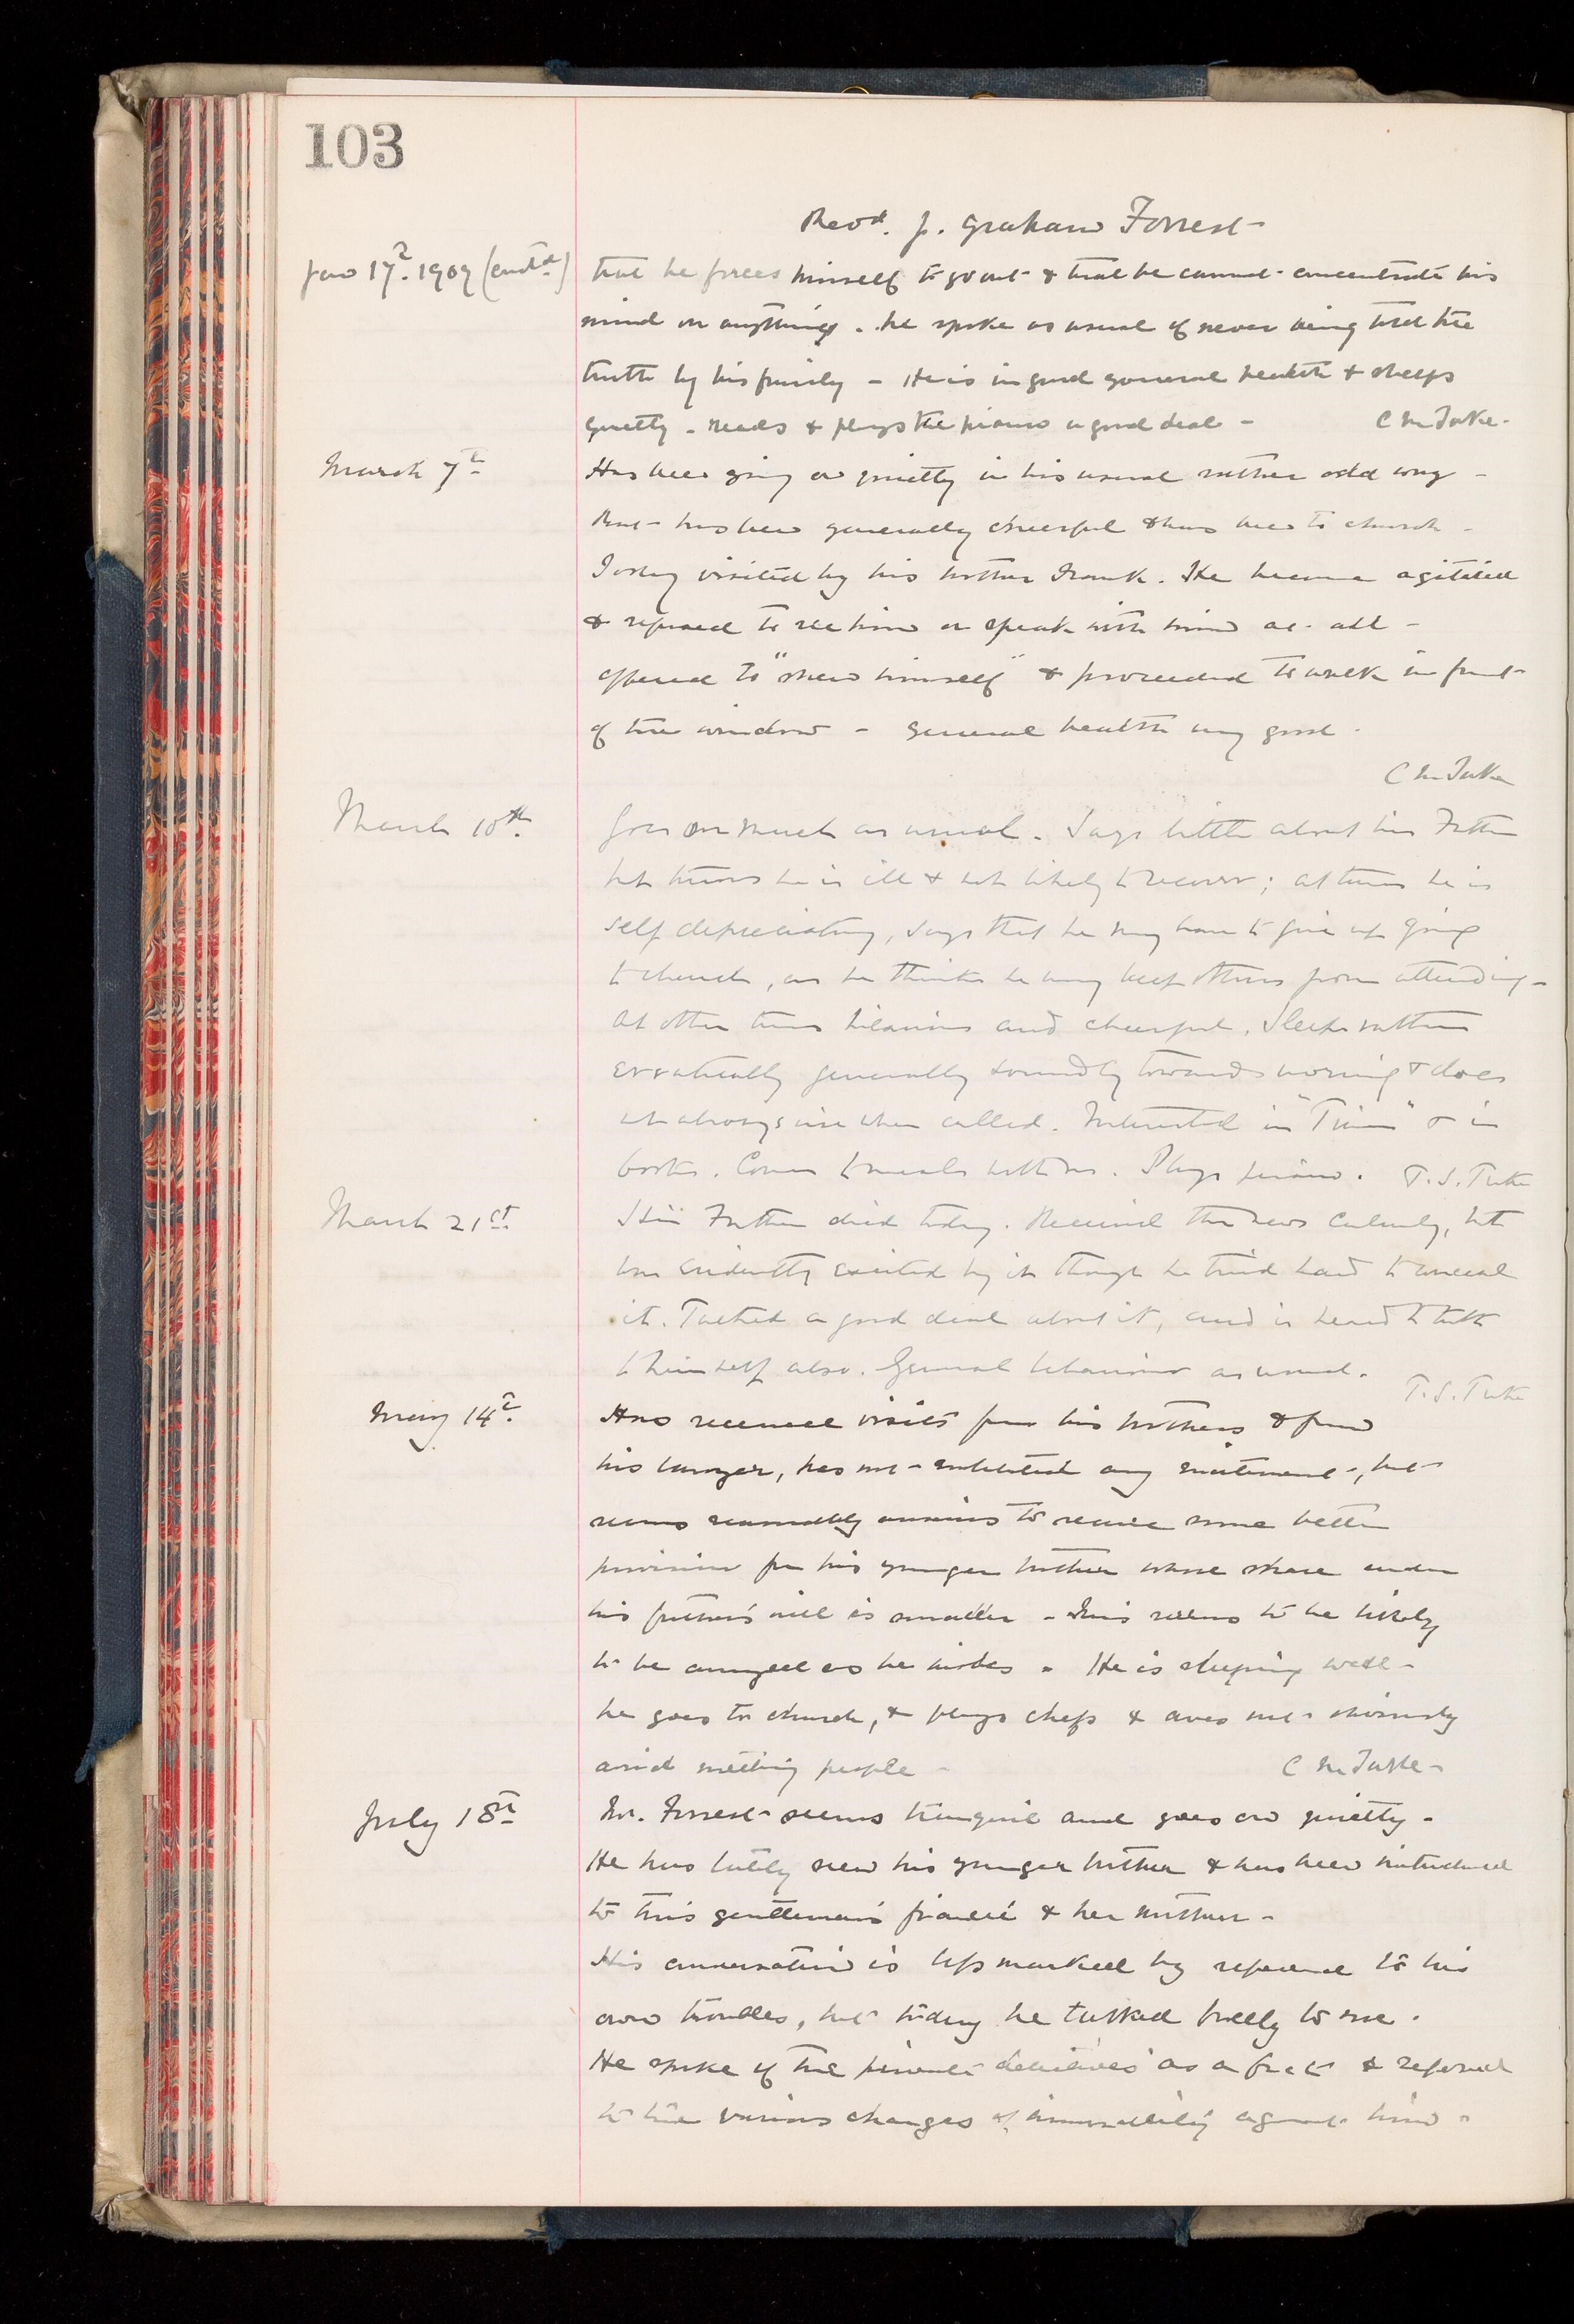 103
Revd. J. Graham Forrest
Jan 17th. 1909 (contd) that he forces himself to go out & that he cannot concentrate his
mind on anything. he spoke as usual of never being told the
truth by his family - He is in good general health & sleeps
quietly - reads & plays the piano a good deal - C M Tuke.
March 7th Has been going on quietly in his usual rather odd way -
But has been generally cheerful & has been to church -
Today visited by his brother Frank. He became agitated
& refused to see him or speak with him at all -
offered to "shew himself" & proceeded to walk in front
of the window - General health very good.
C M Tuke
March 10th. Goes on much as usual. Says little about his Father
but knows he is ill & not likely to recover; at times he is
self depreciatory, says that he may have to give up going
to church, as he thinks he may keep others from attending -
At other times hilarious and cheerful. Sleeps rather
erratically generally soundly towards morning & does
not always rise when called. Interested in "Times" & in
books. Comes to meals with us. Plays piano. T.S. Tuke
March 21st. His Father died today. Received the news calmly, but
was evidently excited by it though he tried hard to conceal
it. Talked a good deal about it, and is heard to talk
to himself also. General behaviour as usual.
T.S. Tuke
May 14th. Has received visits from his brothers & from
his lawyer, has not exhibited any excitement, but
seems reasonably anxious to secure some better
provision for his younger brother whose share under
his father's will is smaller - This seems to be likely
to be arranged as he wishes. He is sleeping well -
he goes to church, & plays chess & does not obviously
avoid meeting people - C M Tuke -
July 18th Mr. Forrest seems tranquil and goes on quietly -
He has lately seen his younger brother & has been introduced
to this gentleman's fiancée & her mother -
His conversation is less marked by reference to his
own troubles, but today he talked freely to me.
He spoke of the private detectives as a fact & referred
to the various charges of immorality against him -